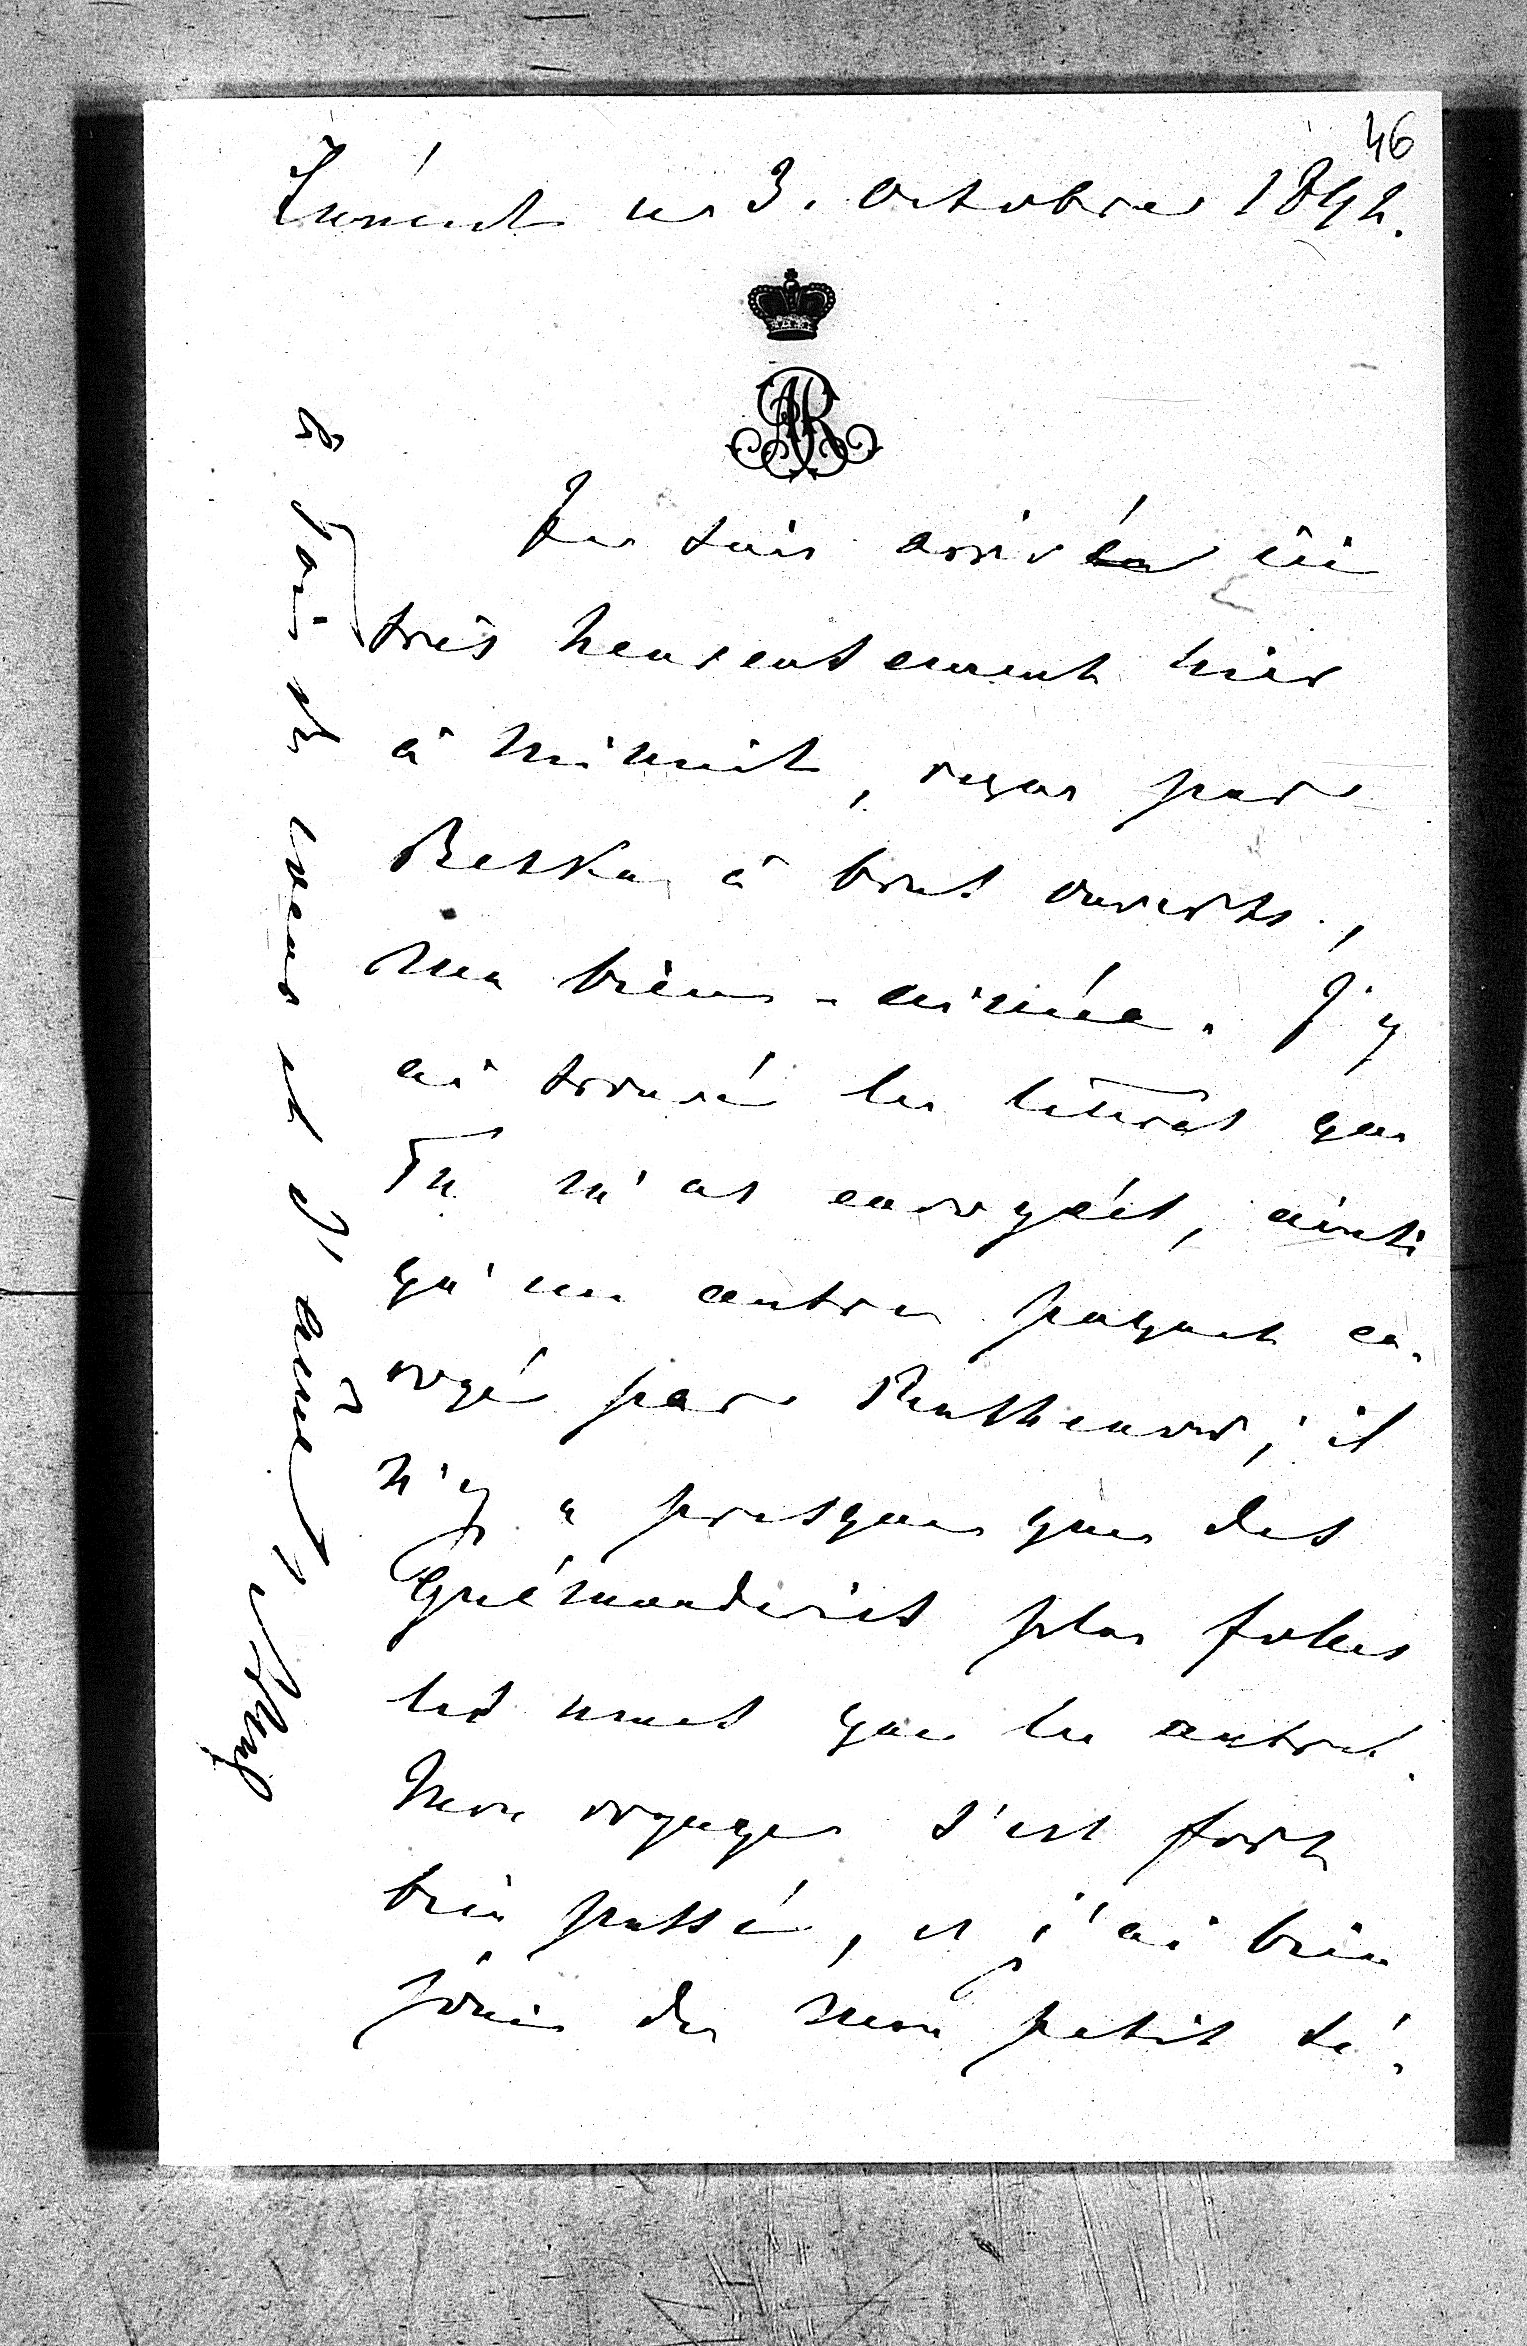 46
Zürich le 3. Octobre 1892.
AR
Je suis arrivée ici
très heureusement hier
à minuit, reçue par
à bras ouverts,
ma bien-aimée. J'y
ai trouvé les lettres que
Tu m'as envoyées, ainsi
qu'un autre paquet en-
voyé par ; il
n'y a presque que des
plus folles
les unes que les autres.
Mon voyage s'est fort
bien passé, et j'ai bien
joui de mon petit sé-
de cœur et T'aime